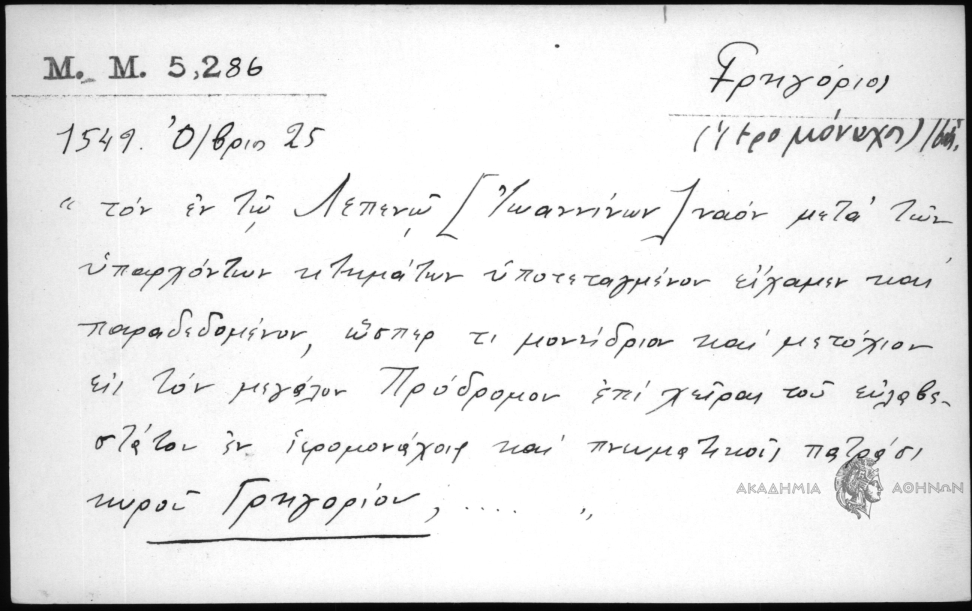 Μ. Μ. 5,286
Γρηγόριος
1549. Ὀ/βριος 25
(ἱερομόναχος)
“ τόν ἐν τῷ Λεπενῷ [Ἰωαννίνων] ναόν μετά τῶν
ὑπαρχόντων κτημάτων ὑποτεταγμένον εἴχαμεν καί
παραδεδομένον, ὥσπερ τι μονύδριον καί μετόχιον
εἰς τόν μεγάλον Πρόδρομον ἐπί χεῖρας τοῦ εὐλαβε-
στάτου ἐν ἱερομονάχοις καί πνευματικοῖς πατράσι
κυροῦ Γρηγορίου, ..... „
ΑΚΑΔΗΜΙΑ ΑΘΗΝΩΝ